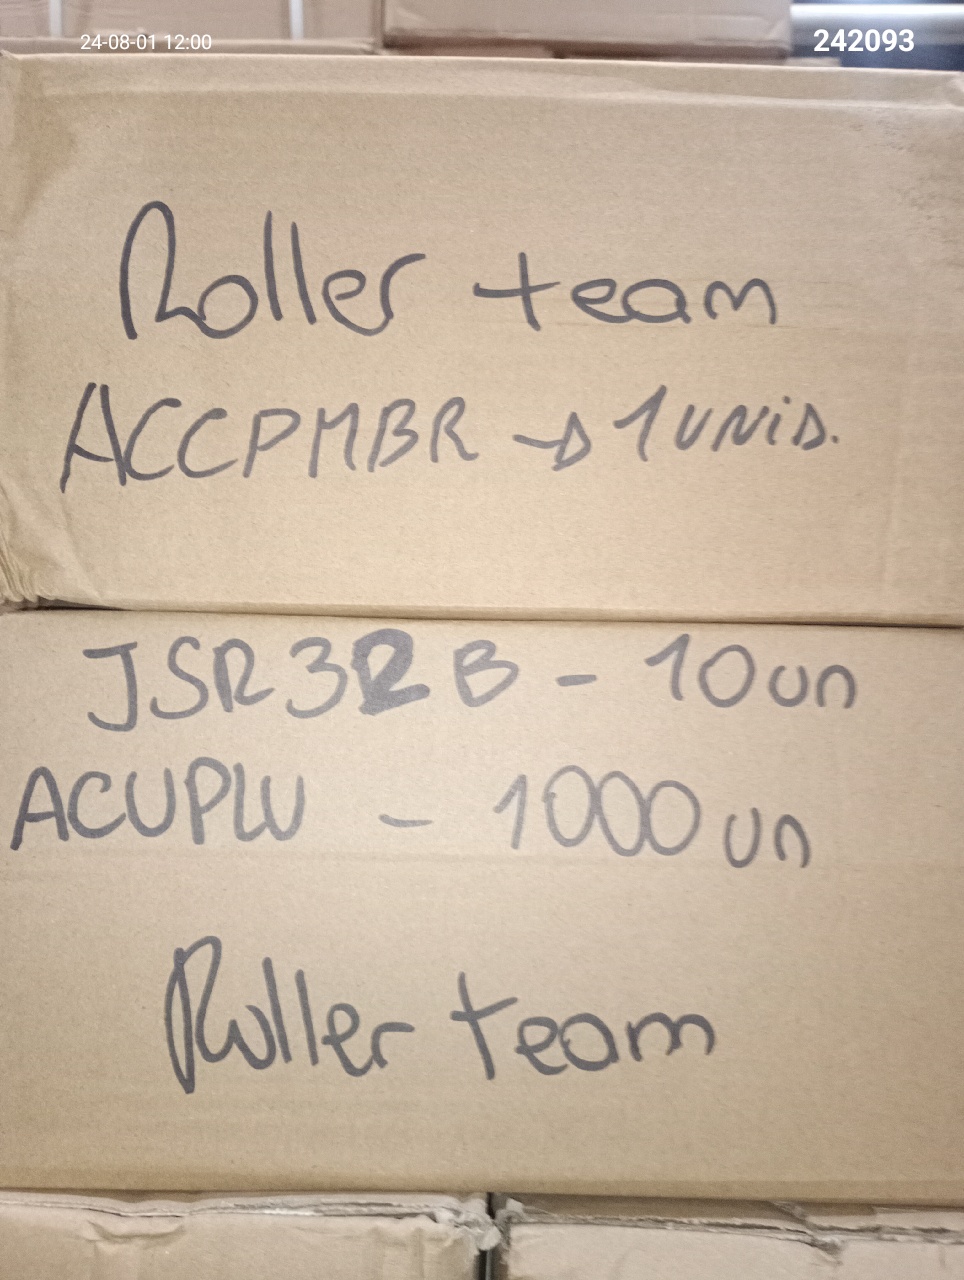 24-08-01 12:00
242093
Roller team
ACCPMBR → 1 UNID.
JSR32B - 10 un
ACUPLW - 1000 un
Roller team